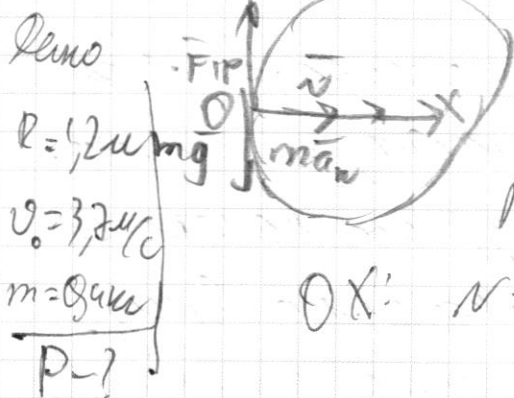 Дано
R=1,2м
υ₀=3,7м/с
m=0,4кг
P-?
Fтр
N
O
X
mg
maₙ
OX: N